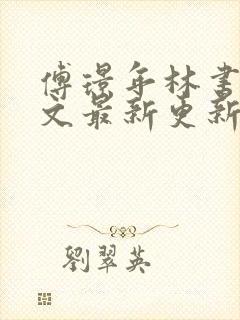 傅璟年林书
文最新更新
劉翠英